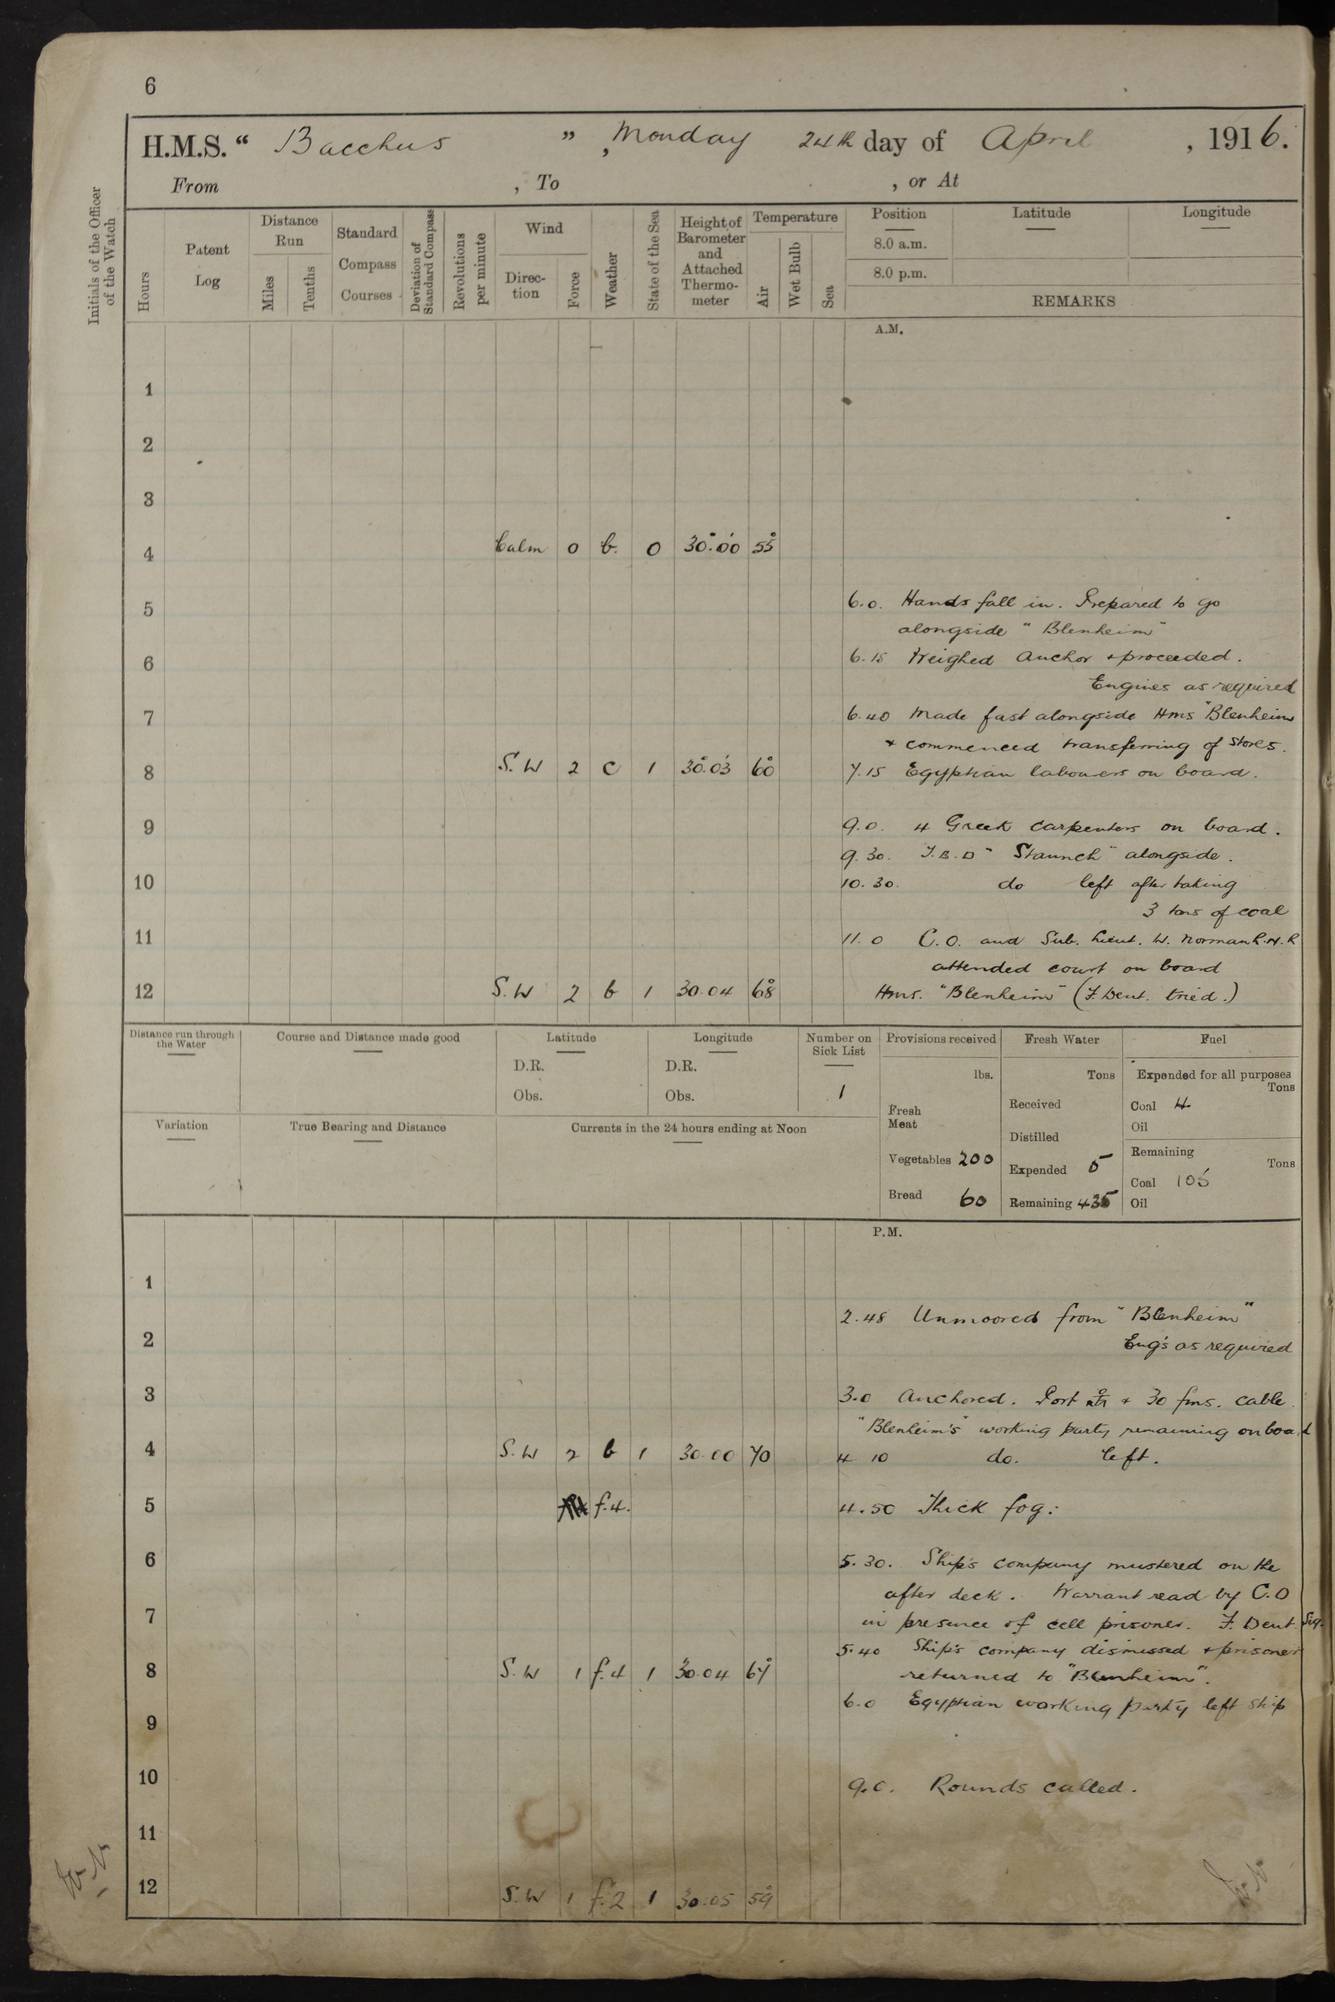 6
H.M.S. “ Bacchus ”, Monday 24th day of April, 1916.
From , To , or At
Initials of the Officer of the Watch
Hours
Patent Log
Distance Run
Miles
Tenths
Standard Compass Courses
Deviation of Standard Compass
Revolutions per minute
Wind
Direc-tion
Force
Weather
State of the Sea
Height of Barometer and Attached Thermo-meter
Temperature
Air
Wet Bulb
Sea
Position
8.0 a.m.
8.0 p.m.
Latitude
Longitude
REMARKS
A.M.
1
2
3
4 Calm 0 b. 0 30.00 55
5
6.0. Hands fall in. Prepared to go
alongside "Blenheim"
6
6.15 Weighed anchor + proceeded.
Engines as required
7
6.40 Made fast alongside Hms "Blenheim
+ commenced transferring of stores.
8 S.W 2 c 1 30.03 60
7.15 Egyptian labourers on board.
9
9.0. 4 Greek carpenters on board.
9.30. T.B.D "Staunch" alongside.
10
10.30. do left after taking
3 tons of coal
11
11.0 C.O. and Sub. Lieut. W. Norman R.N.R
attended court on board
12 S.W 2 b 1 30.04 68
Hms. "Blenheim" (F. Dent. tried.)
Distance run through the Water
Course and Distance made good
Latitude
D.R.
Obs.
Longitude
D.R.
Obs.
Number on Sick List
1
Provisions received
lbs.
Fresh Meat
Vegetables 200
Bread 60
Fresh Water
Tons
Received
Distilled
Expended 5
Remaining 435
Fuel
Expended for all purposes
Tons
Coal 4
Oil
Remaining
Tons
Coal 105
Oil
Variation
True Bearing and Distance
Currents in the 24 hours ending at Noon
P.M.
1
2
2.48 Unmoored from "Blenheim"
Eng's as required
3
3.0 Anchored. Port + 30 fms. cable.
"Blenheim's" working party remaining on board
4 S.W 2 b 1 30.00 70
4 10 do. left.
5 f.4.
4.50 Thick fog:
6
5.30. Ship's company mustered on the
after deck. Warrant read by C.O
7
in presence of cell prisoner. F. Dent Sig.
5.40 Ship's company dismissed + prisoner
8 S.W 1 f.4 1 30.04 67
returned to "Blenheim".
6.0 Egyptian working party left ship
9
10
9.0. Rounds called.
11
12 S.W 1 f.2 1 30.05 59
W.N.
W.N.